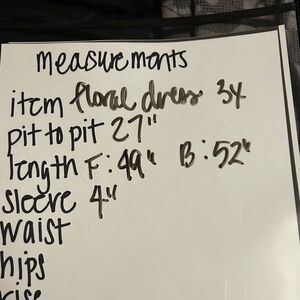 measurements
item floral dress 3x
pit to pit 27"
length F: 49" B: 52"
sleeve 4"
waist
hips
rise